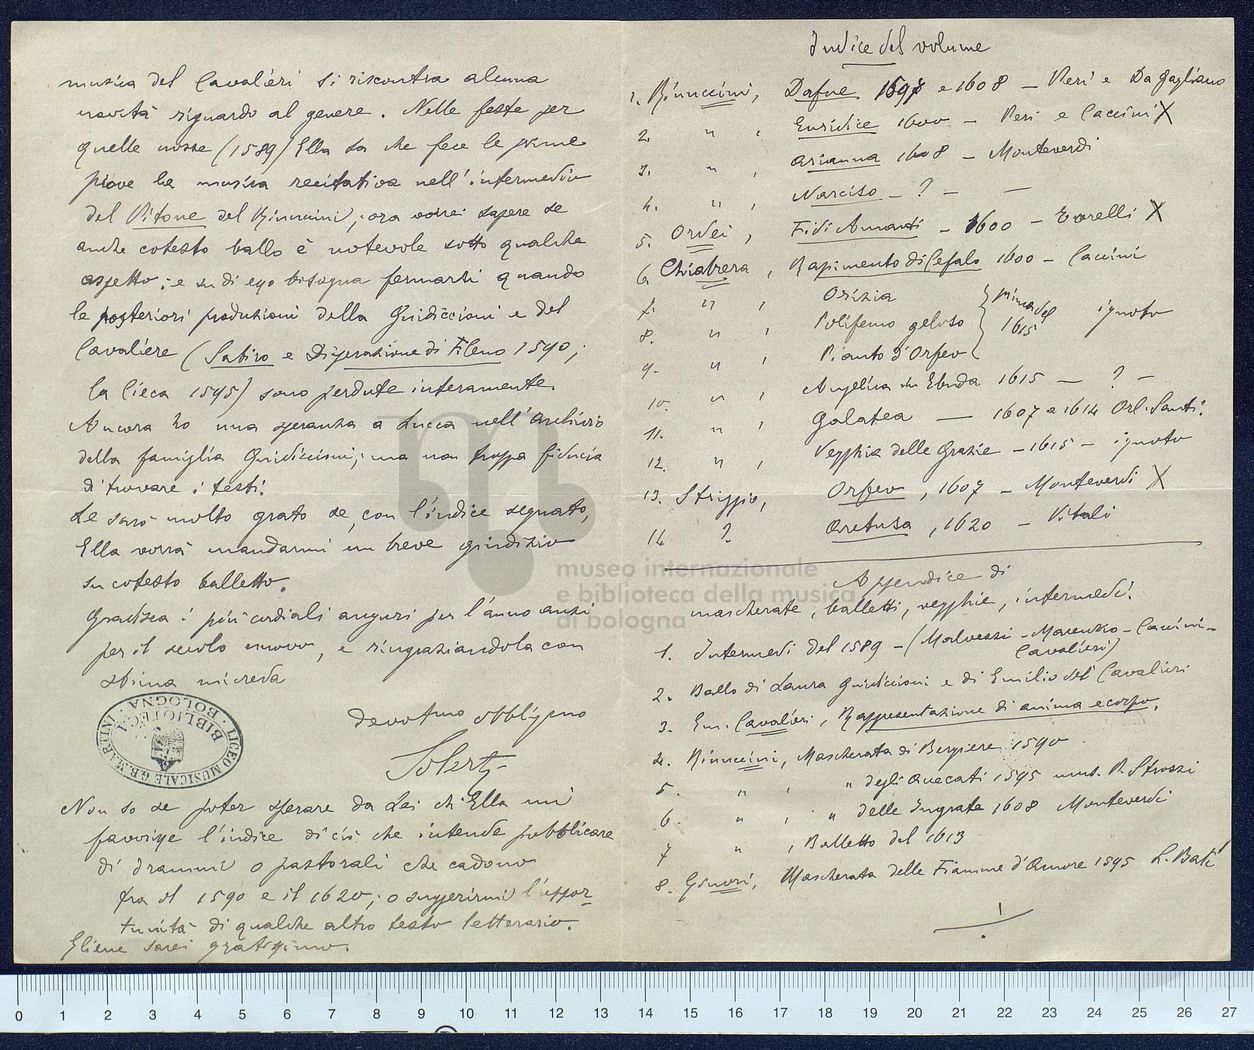 musica del Cavalieri si riscontra alcuna
novità riguardo al genere. Nelle feste per
quelle nozze (1589) Ella sa che fece le prime
prove la musica recitativa nell'intermedio
del Pitone del Rinuccini; ora vorrei sapere se
anche cotesto ballo è notevole sotto qualche
aspetto; e su di esso bisogna fermarsi quando
le posteriori produzioni della Guidiccioni e del
Cavaliere (Satiro e Disperazione di Fileno 1590;
la Cieca 1595) sono perdute interamente.
Ancora ho una speranza a Lucca nell'archivio
della famiglia Guidiccioni; ma non troppa fiducia
di trovare i testi.
Le sarò molto grato se, con l'indice segnato,
Ella vorrà mandarmi un breve giudizio
su cotesto balletto.
Gradisca i più cordiali auguri per l'anno anzi
per il secolo nuovo, e ringraziandola con
stima mi creda
devotmo obbligmo
Solerti
LICEO MUSICALE G.B. MARTINI
BIBLIOTECA
BOLOGNA
Non so se poter sperare da Lei ch'Ella mi
favorisse l'indice di ciò che intende pubblicare
di drammi o pastorali che cadono
fra il 1590 e il 1620; o suggerirmi l'oppor-
tunità di qualche altro testo letterario.
Gliene sarei gratissimo.
Indice del volume
1. Rinuccini, Dafne 1697 e 1608 – Peri e Da Gagliano
2. " , Euridice 1600 – Peri e Caccini X
3. " , Arianna 1608 – Monteverdi
4. " , Narciso – ? – —
5. Orsei, Fidi Amanti – 1600 – Torelli X
6. Chiabrera, Rapimento di Cefalo 1600 – Caccini
7. " , Orizia
8. " , Polifemo geloso prima del 1615 ignoto
9. " , Pianto d'Orfeo
10. " , Angelica in Ebuda 1615 — ? –
11. " , Galatea — 1607 e 1614 Orl. Santi.
12. " , Vegghia delle Grazie – 1615 – ignoto
13. Striggio, Orfeo, 1607 – Monteverdi X
14. ? Aretusa, 1620 – Vitali
Appendice di
mascherate, balletti, vegghie, intermedi.
1. Intermedi del 1589 – (Malvezzi – Marenzio – Caccini –
Cavalieri)
2. Ballo di Laura Guidiccioni e di Emilio del Cavalieri
3. Em. Cavalieri, Rappresentazione di anima e corpo.
4. Rinuccini, Mascherata di Bergiere 1590
5. " , " degli Accecati 1595 mus. P. Strozzi
6. " , " delle Ingrate 1608 Monteverdi
7 " , Balletto del 1613
8. Mascherata delle Fiamme d'Amore 1595 L. Bati
museo internazionale
e biblioteca della musica
di bologna
0 1 2 3 4 5 6 7 8 9 10 11 12 13 14 15 16 17 18 19 20 21 22 23 24 25 26 27